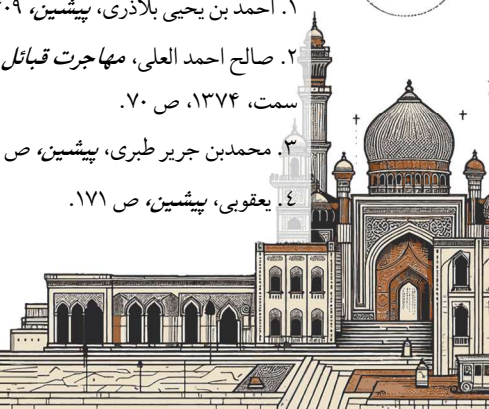 ۱. احمد بن یحیی بلاذری، پیشین، ۰۹
۲. صالح احمد العلی، مهاجرت قبائل
سمت، ۱۳۷۴، ص ۷۰.
۳. محمدبن جریر طبری، پیشین، ص
٤. یعقوبی، پیشین، ص ۱۷۱.